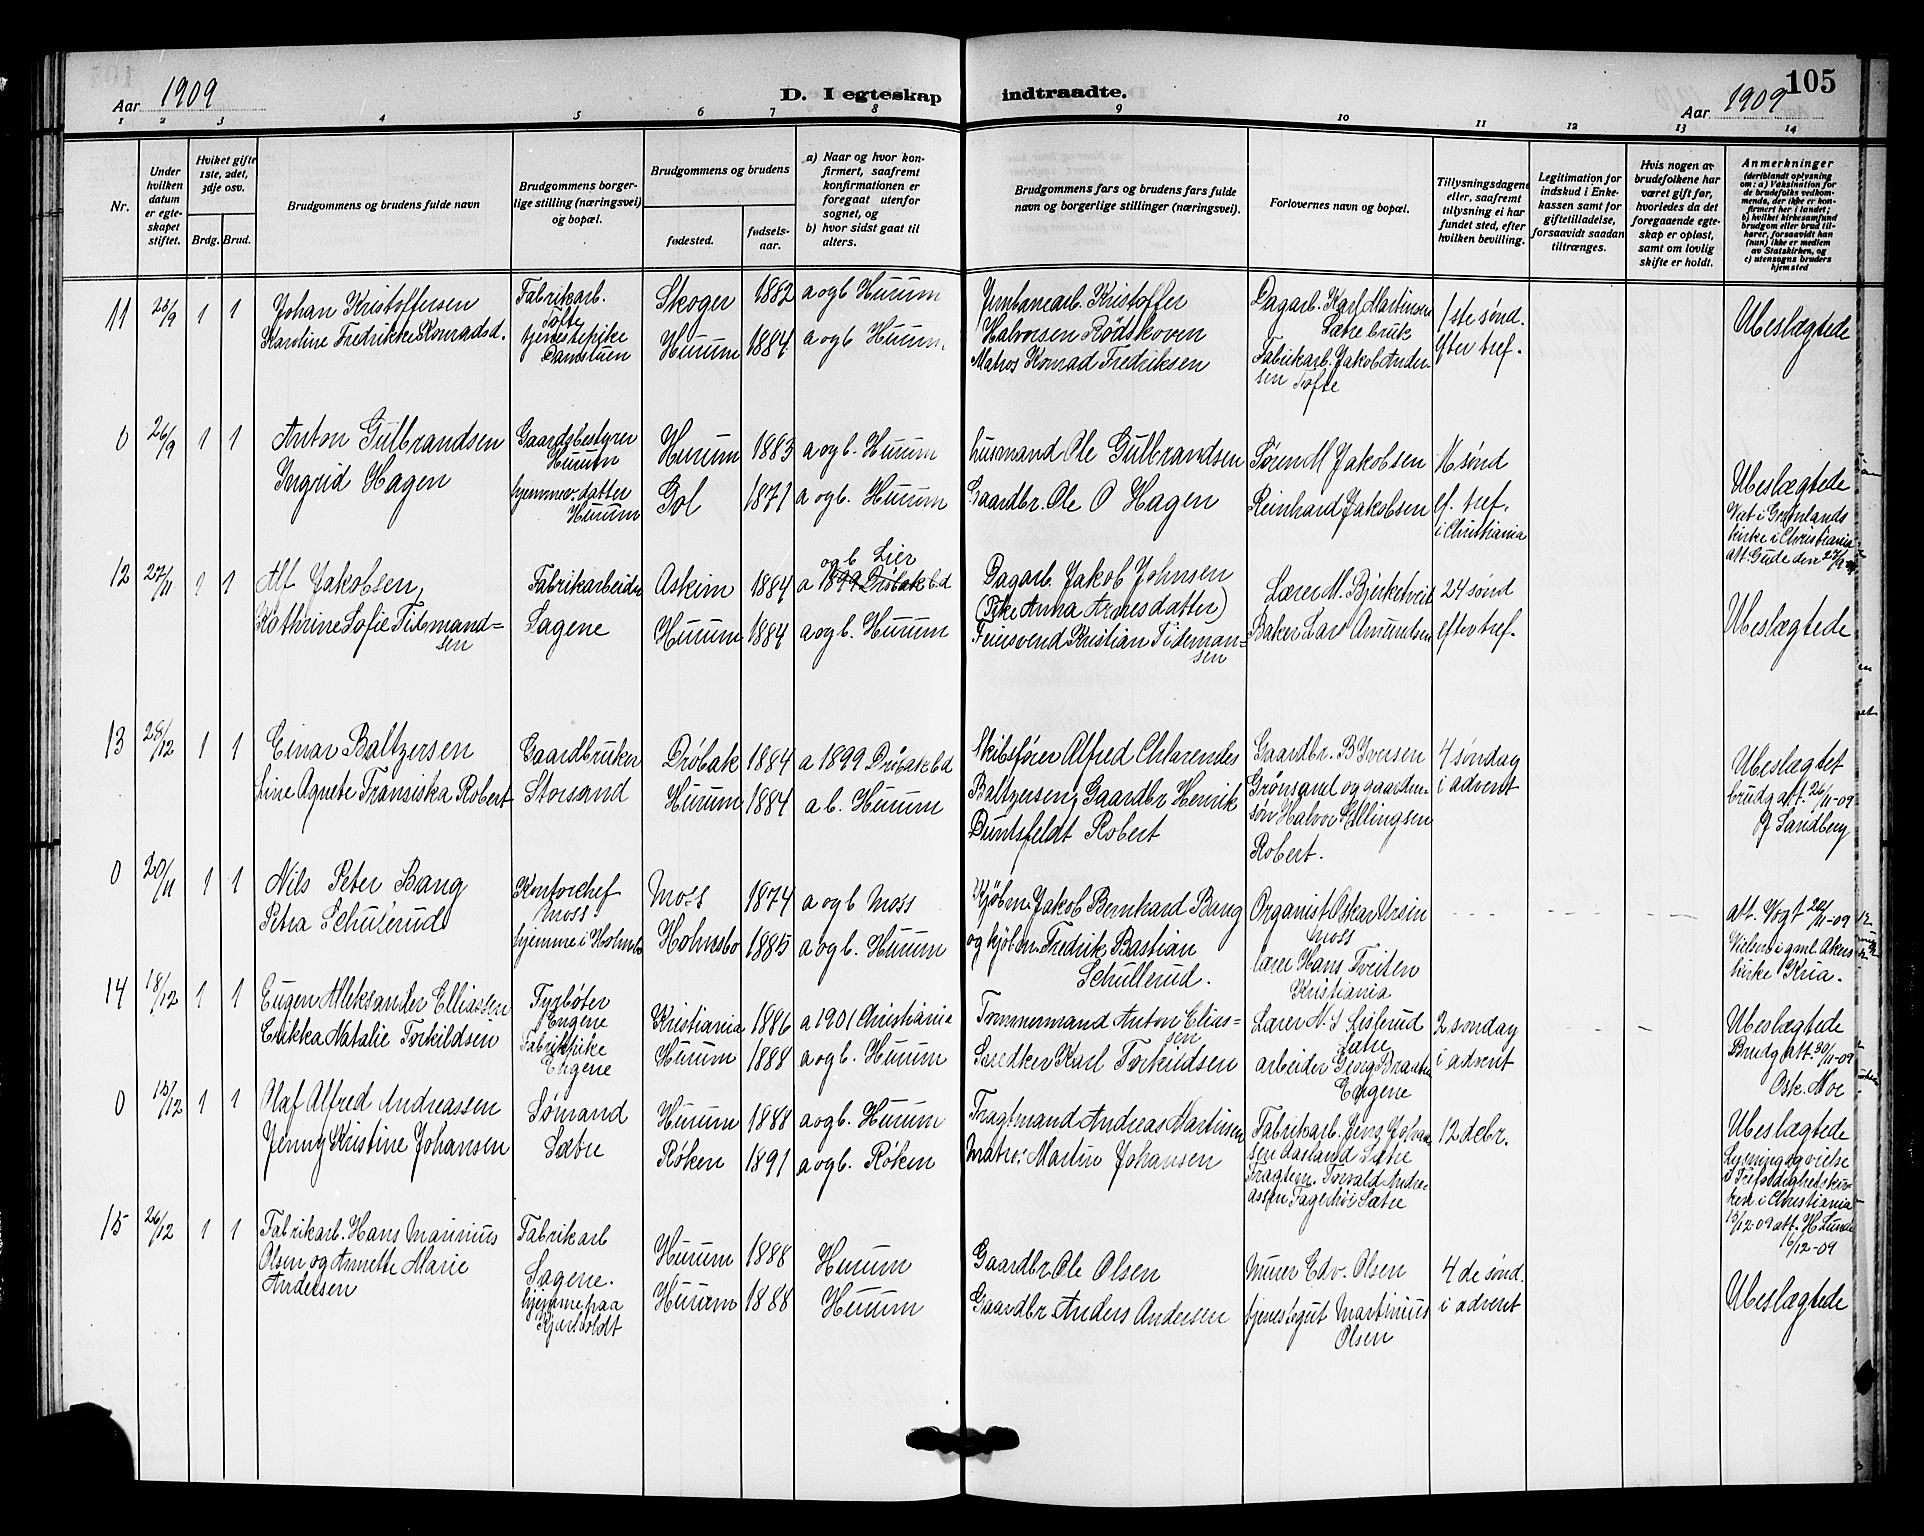 Aar 1909
D. I egteskap
indtraadte.
Aar 1909
105
1 2 3 4 5 6 7 8 9 10 11 12 13 14
Nr.
Under hvilken datum er egteskapet stiftet.
Hvilket gifte 1ste, 2det, 3dje osv.
Brdg. Brud.
Brudgommens og brudens fulde navn
Brudgommens borgerlige stilling (næringsvei) og bopæl.
Brudgommens og brudens
fødested.
fødselsaar.
a) Naar og hvor konfirmert, saafremt konfirmationen er foregaat utenfor sognet, og
b) hvor sidst gaat til alters.
Brudgommens fars og brudens fars fulde navn og borgerlige stillinger (næringsvei).
Forlovernes navn og bopæl.
Tillysningsdagene eller, saafremt tillysning ei har fundet sted, efter hvilken bevilling.
Legitimation for indskud i Enkekassen samt for giftetilladelse, forsaavidt saadan tiltrænges.
Hvis nogen av brudefolkene har været gift før, hvorledes da det foregaaende egteskap er opløst, samt om lovlig skifte er holdt.
Anmerkninger (deriblandt oplysning om: a) Vaksination for de brudefolks vedkommende, der ikke er konfirmert her i landet; b) hvilket kirkesamfund brudgom eller brud tilhører, forsaavidt han (hun) ikke er medlem av Statskirken, og c) utensogns bruders hjemsted
11 1 1 Johan Kristoffersen
Karoline Fredrikke Konradsd.
Fabrikarb.
Tofte
tjenestepike
Damstuen
Skoger 1882 a og b Hurum
Hurum 1884 a og b Hurum.
Kristoffer
Halvorsen Rødskoven
Matros Konrad Fredriksen
Dagarb. Karl Martinsen
Sætre bruk
Fabrikarb. Jakob Ander-
sen Tofte
1ste sønd.
efter tref.
Ubeslægtede
0 26/9 1 1 Anton Gulbrandsen
Ingrid Hagen
Gaardsbestyrer
Hurum
hjemmev. datter
Hurum
Hurum 1883 a og b. Hurum
Gol 1871 a og b. Hurum
husmand Ole Gulbrandsen
Gaardbr. Ole O Hagen
Søren M Jakobsen
Reinhard Jakobsen
16 sønd
ef. tref.
i Christiania
Ubeslægtede
Viet i Grønlands
kirke i Christiania
att. Gude den
12 27/11 1 1 Alf Jakobsen
Kathrine Sofie Tidemand=
sen
Fabrikarbeider
Sagene
Askim 1884 a 1899 Drøbak b d
og b Lier
Hurum 1884 a og b. Hurum
Dagarb. Jakob Johnsen
(Pike Anna Arnesdatter)
Feiersvend Kristian Tideman=
sen
Lærer M. Bjerketveit
Baker Lars Amundsen
24 sønd
efter tref.
Ubeslægtede
13 28/12 1 1 Einar Baltzersen
Line Agnete Fransiska Robert
Gaardbruker
Storsand
Drøbak 1884 a 1899 Drøbak b d
Hurum 1884 a b. Hurum
Skibsfører Alfred Chlarendes
Baltzersen, Gaardbr Henrik
Duntsfeldt Robert
Gaardbr. B Iversen
Grønsand og gaardm-
søn Halvor Ellingsen
Robert.
4 søndag
i advent
Ubeslægtet
brudg att. 26/11-09
Sandberg
0 20/11 1 1 Nils Peter Bang
Petra Schulerud
Kontorchef
Moss
hjemme i Holmsbo
Moss 1874 a og b Moss
Holmsbo 1885 a og b. Hurum
Kjøbm. Jakob Bernhard Bang
og kjøbm. Fredrik Bastian
Schullerud.
Organist Oskar Ursin
Moss
lærer Hans Tveiten
Kristiania
att. Vogt 20/11-09
Vielsen i gml. Akers
kirke Kria.
14 18/12 1 1 Eugen Alleksander Elliassen
Erikka Natalie Torkildsen
Fyrbøter
Engene
Fabrikpike
Engene
Kristiania 1886 a 1901 Christiania
Hurum 1888 a og b. Hurum
Tømmermand Anton Elias=
sen
Snedker Karl Torkildsen
Lærer N. S Lislerud
Sætre
arbeider Georg Braaten
Engene
2 søndag
i advent
Ubeslægtede
Brudg att. 30/11-09
Osk. Moe
0 15/12 1 1 Olaf Alfred Andreassen
Jenny Kristine Johansen
Sømand
Sætre
Hurum 1888 a og b. Hurum
Røken 1891 a og b. Røken
Fragtmand Andreas Martinsen
Matros Martin Johansen
Fabrikarb. Jens Johan-
sen Sætre
Fragtem. Torvald Andre-
assen Fagerhøi Sætre
12 debr.
Ubeslægtede
Lysning og vielse
i Trefoldighedskir-
ken i Christiania
15/12-09 att. H Lunde
16/12-09
15 26/12 1 1 Fabrikarb. Hans Marinius
Olsen og Annette Marie
Andersen
Fabrikarb
Sagene.
hjemme paa
Kjærholdt
Hurum 1888 Hurum
Hurum 1888 Hurum
Gaardbr. Ole Olsen
Gaardbr Anders Andersen
Murer Edv. Olsen
tjenestegut Martinius
Olsen
4de sønd.
i advent
Ubeslægtede